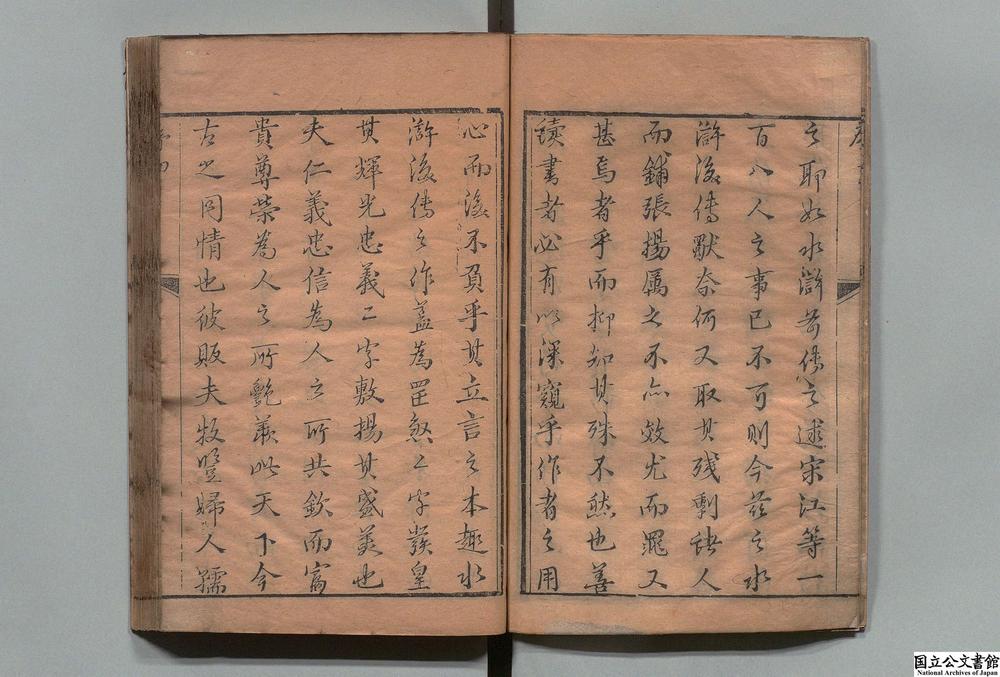 之耶如水滸前傳之述宋江等一
百八人之事已不可則今茲之水
滸後傳猷奈何又取其残剩諸人
而鋪張揚厲之不亦效尤而罪又
甚焉者乎而抑知其殊不然也善
讀書者必有以深窺乎作者之用
心而後不負乎其立言之本趣水
滸後傳之作蓋為罡煞二字發皇
其輝光忠義二字敷揚其盛美也
夫仁義忠信為人之所共欽而富
貴尊榮為人之所艷羨此天下今
古之同情也彼販夫牧豎婦人孺
国立公文書館
National Archives of Japan